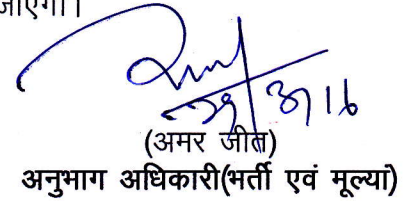 जाएगा।
(अमर जीत)
अनुभाग अधिकारी(भर्ती एवं मूल्या)